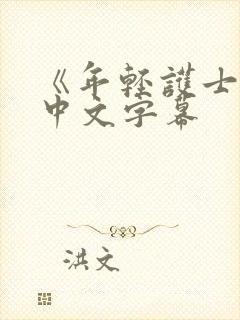 《年轻護士
中文字幕
洪文